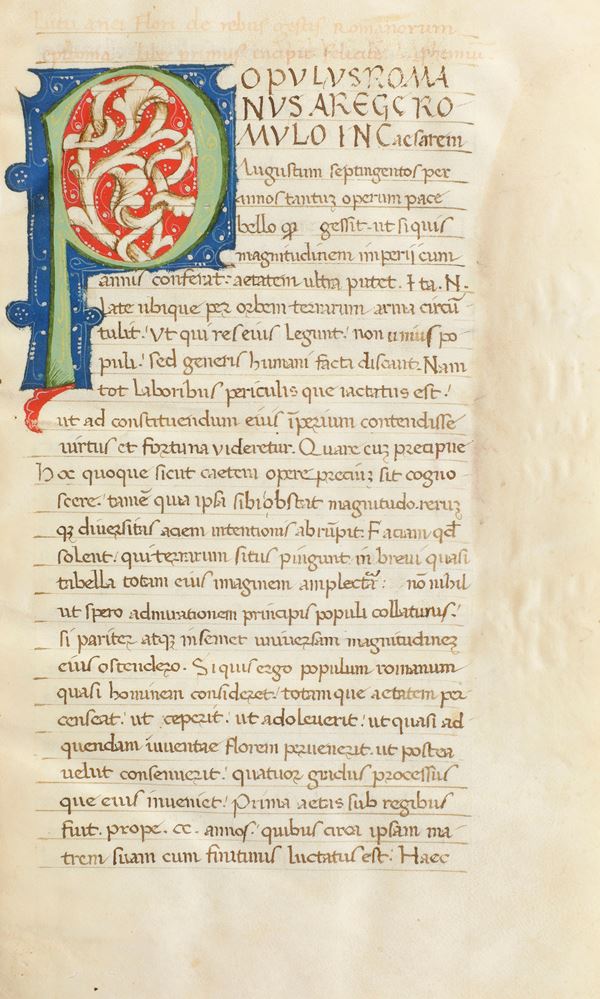 Lutii anei Flori de rebus gestis Romanorum
epithoma liber primus incipit feliciter
POPULUS ROMA
NUS A REGE RO
MULO IN Caesarem
Augustum septingentos per
annos tantuz operum pace
bello qz gessit. ut siquis
magnitudinem imperii cum
annis conferat: aetatem ultra putet. Ita. N.
late ubique per orbem terrarum arma circū
tulit: Ut qui res eius legunt: non unius po
puli: sed generis humani facta discant. Nam
tot laboribus periculis que iactatus est:
ut ad constituendum eius īperium contendisse
uirtus et fortuna videretur. Quare cuz precipue
hoc quoque sicut caetera opere preciuz sit cogno
scere: tamē quia ipsa sibi obstat magnitudo. reruz
qz diuersitas aciem intentionis abrūpit. Faciam qd
solent: qui terrarum situs pingunt in breui quasi
tabella totam eius imaginem amplectar: nō nihil
ut spero admirationem principis populi collaturus:
si pariter atqz insemet uniuersam magnitudinez
eius ostendero. Si quis ergo populum romanum
quasi hominem consideret: totamque aetatem per
censeat: ut ceperit: ut adoleuerit: ut quasi ad
quendam iuuentae florem peruenerit. ut postea
uelut consenuerit: quatuor gradus processus
que eius inueniet: Prima aetas sub regibus
fuit. prope. cc. annos: quibus circa ipsam ma
trem suam cum finitimis luctatus est: Haec